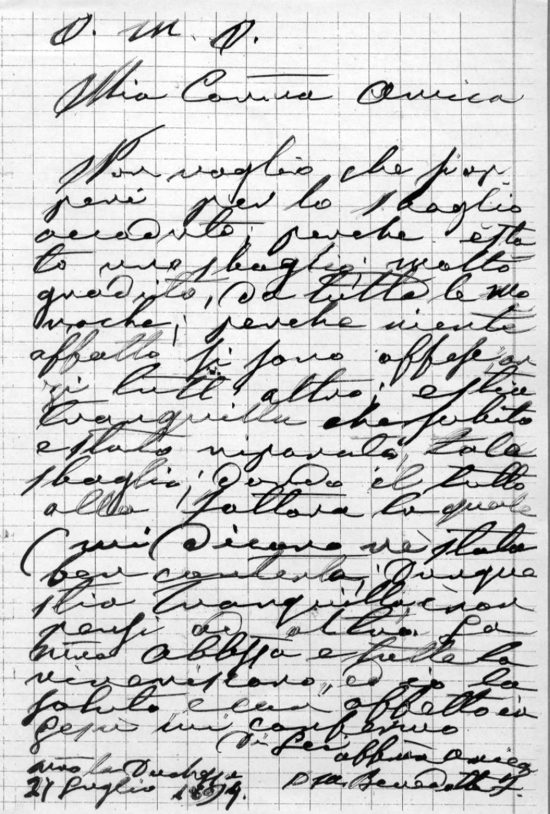 D. M. D.
Mia Carina Amica
Non voglio che si op
peni per lo sbaglio
accaduto; perche è sta
to uno sbaglio; molto
gradito, da tutte le mo
nache; perche niente
affatto si sono offese an
zi tutt altro; e stia
tranquilla che subito
e stato riparata, tale
sbaglio; dando il tutto
alla fattora la quale
mi dicono ne stata
ben contenta; Dunque
stia tranquilla, e non
pensi ad altro. La
mia Abbssa e tutte la
riveriscono, ed io la
saluto e con affetto in
Gesù mi confermo
Di Lei
affma Amica
Benedetta
21 Luglio 1899.